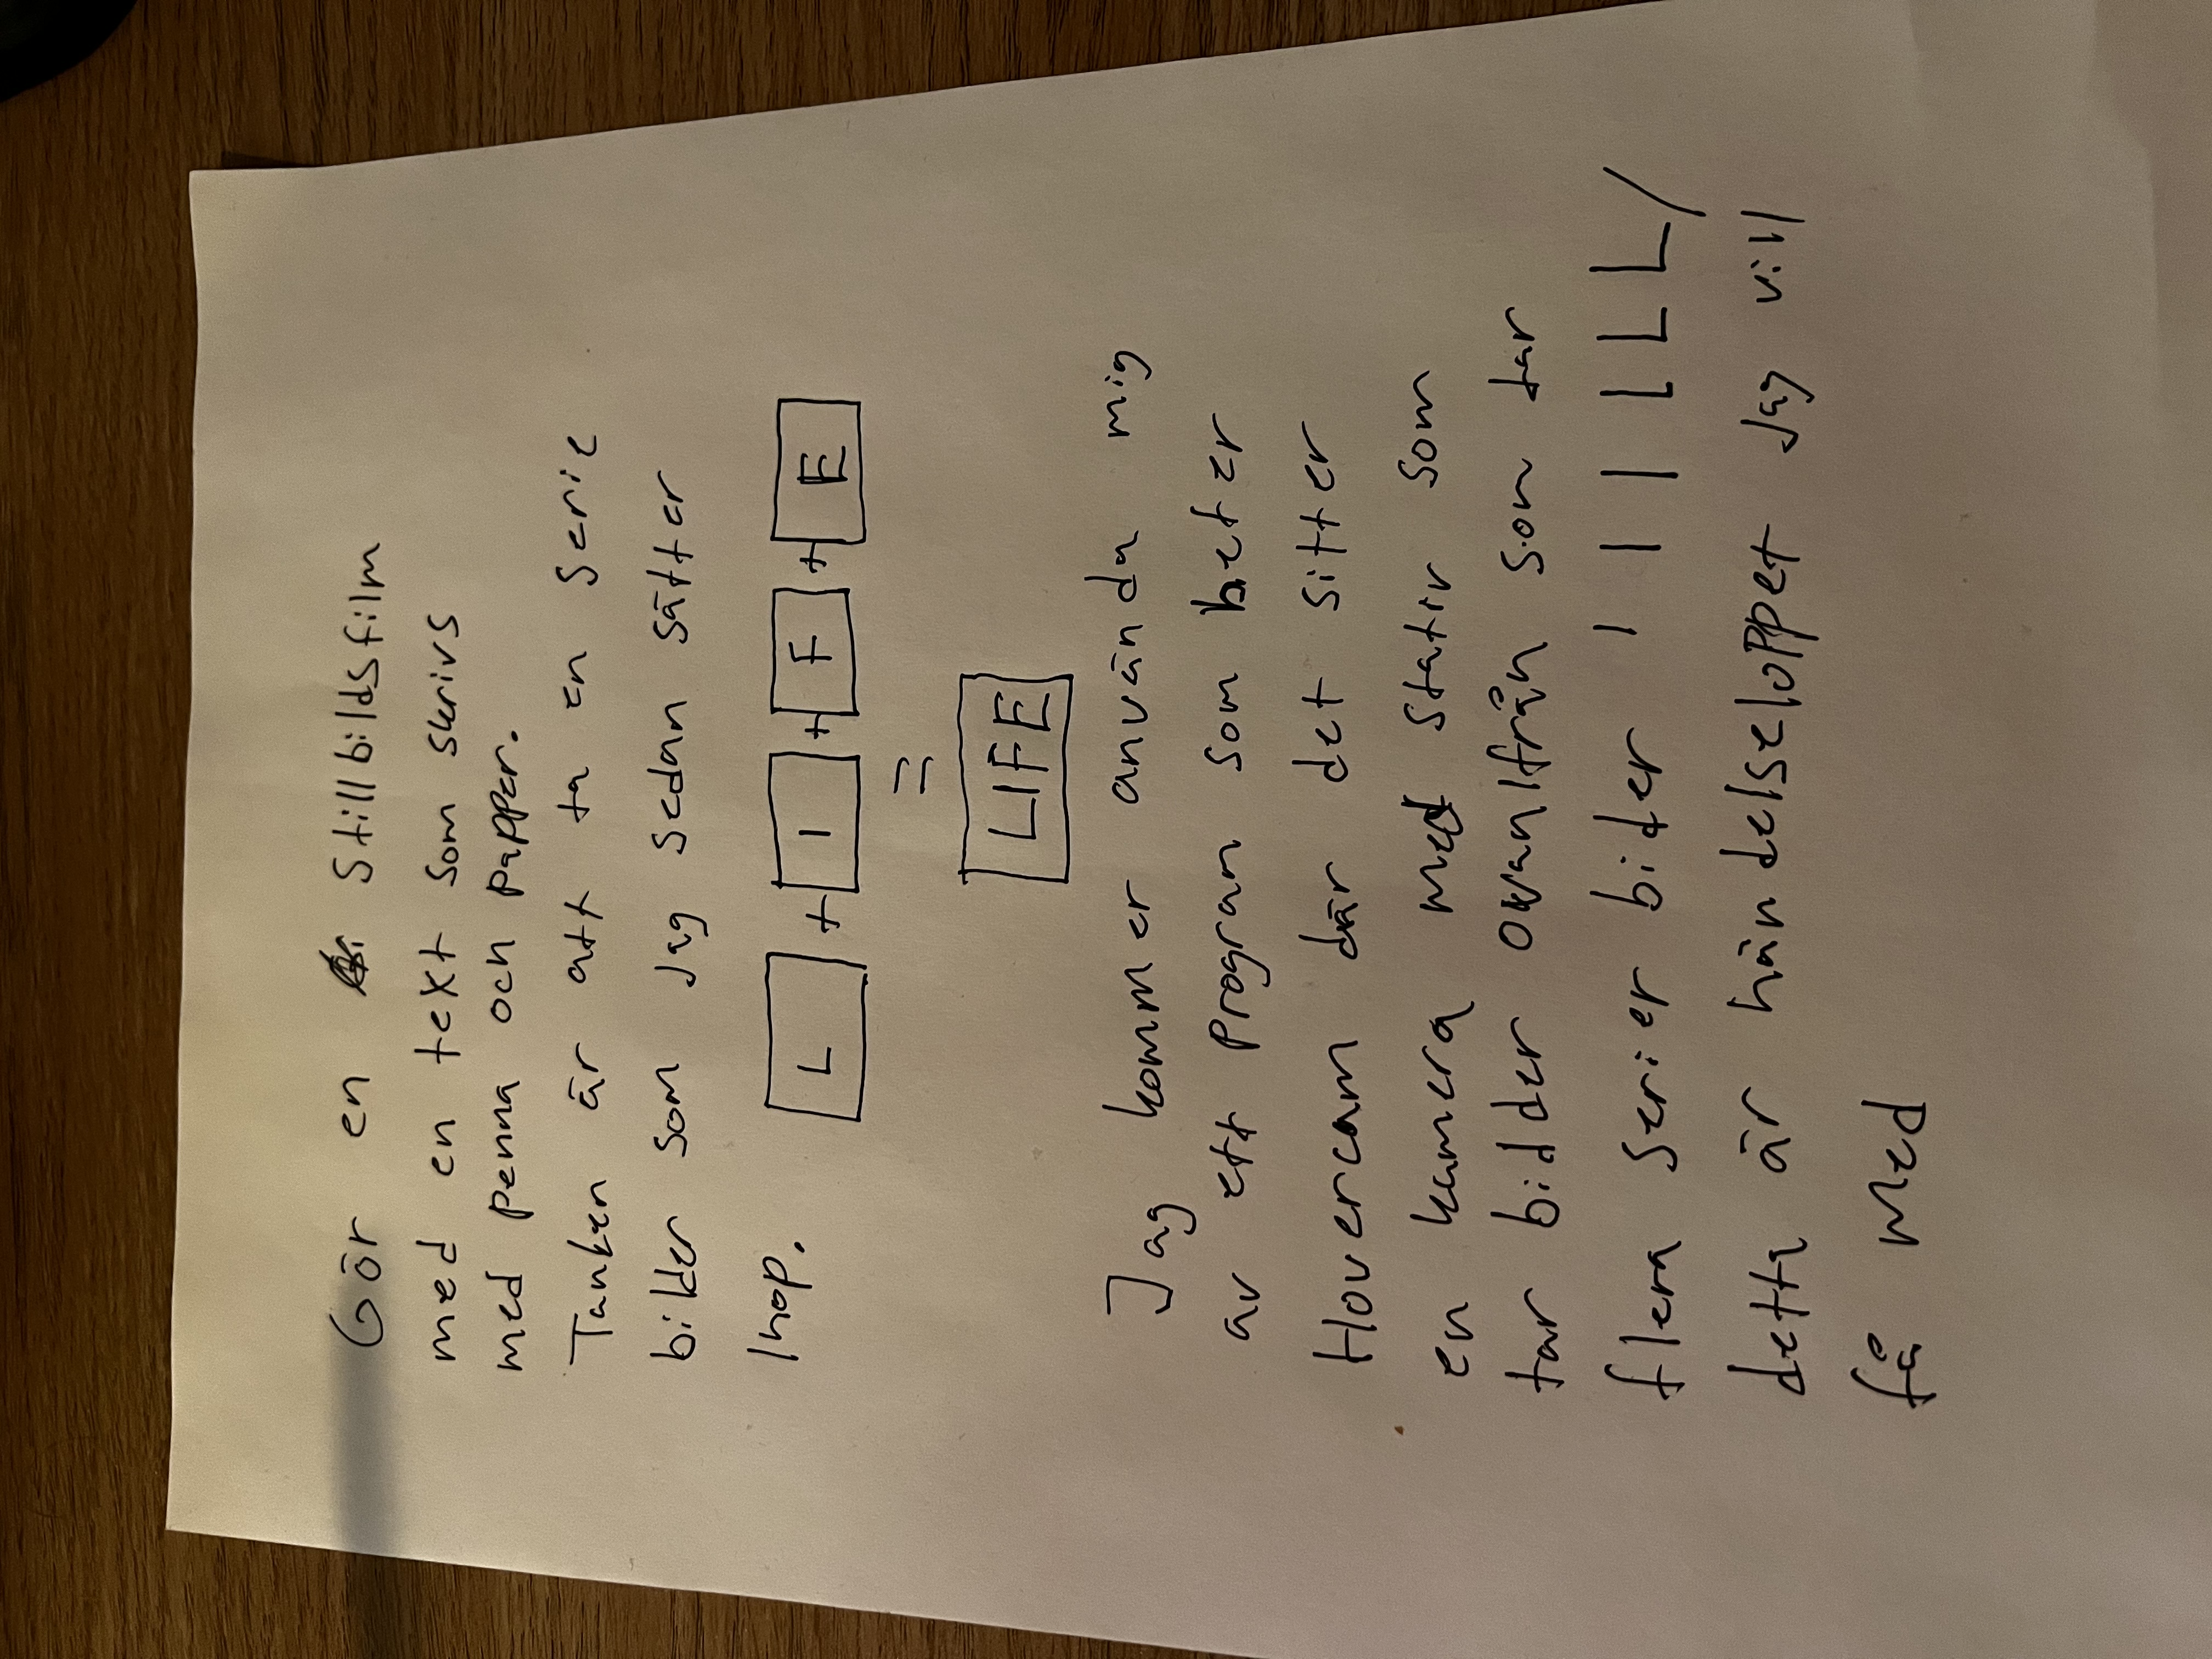 Gör en stillbildsfilm
med en text som skrivs
med penna och papper.
Tanken är att ta en serie
bilder som jag sedan sätter
Ihop.
L + I + F + E
=
LIFE
Jag kommer använda mig
av ett program som heter
Hovercam där det sitter
en kamera med stativ som
tar bidder ovanIfrån som tar
flera serier bider
detta är händelseloppet Jag vill
få med